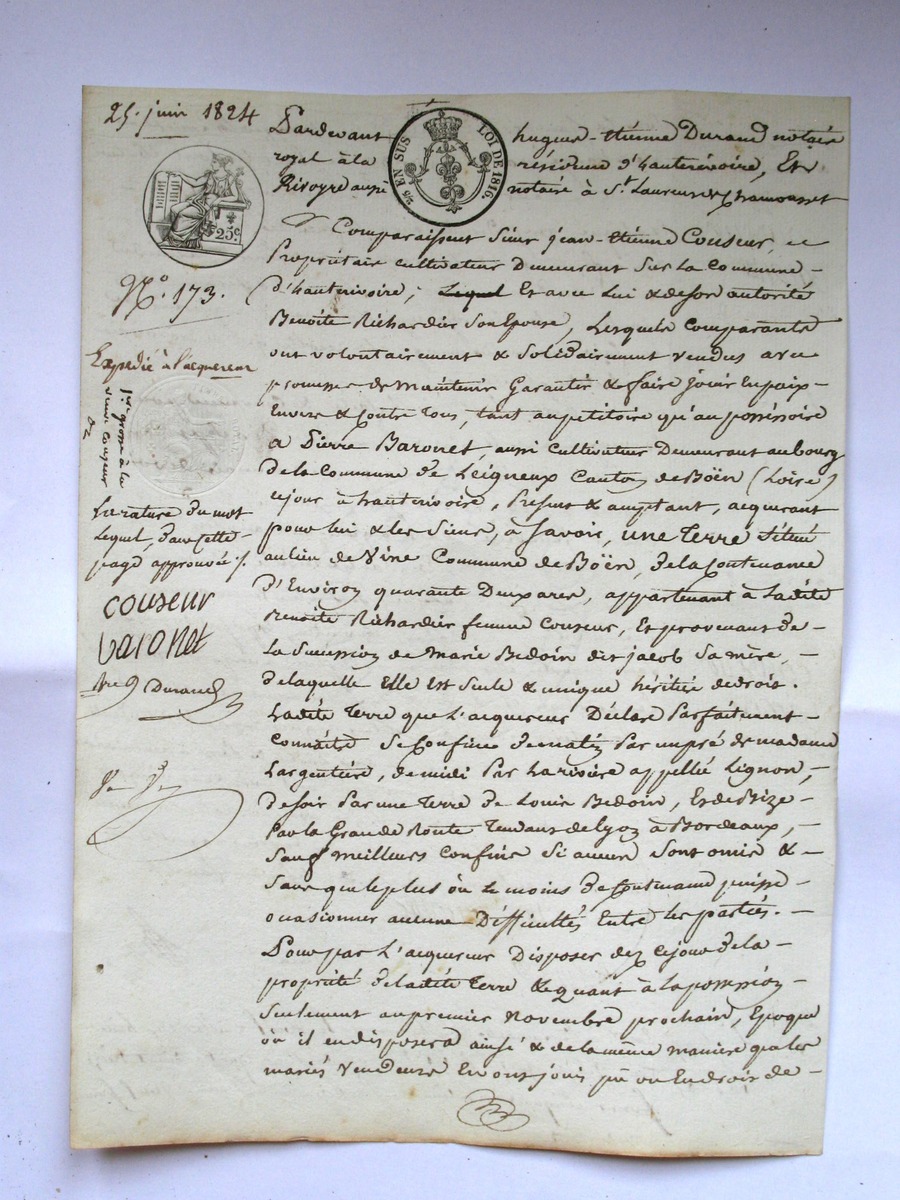 25. juin 1824
Pardevant hugues-étienne Durand notaire
royal à la résidence d'hauterivoire, Et
Rivoyre aussi notaire à St. Laurent de Chamousset
5/8 EN SUS LOI DE 1816.
25c
No. 173.
Expedié à l'acquereur
1re grosse à la
veuve couseur
Comparaissent Sieur jean-étienne Couseur,
Propriétaire cultivateur Demeurant Sur La Commune
d'hauterivoire, Lequel Et avec Lui & de son autorité
Benoite Richardier Son Epouse, Lesquels Comparants
ont volontairement & Solidairement vendus avec
promesse de maintenir Garantir & faire jouir En paix
Envers & Contre Tous, tant au petitoire qu'au possessoire
à Pierre Baronet, aussi Cultivateur Demeurant au bourg
de la Commune de Leigneux Canton de Boën (Loire)
cejour à hauterivoire, Présent & acceptant, acquerant
pour lui & les Siens, à Savoir, une Terre située
au lieu de Vine Commune de Boën, de la Contenance
d'Environ quarante Deux ares, appartenant à Ladite
Benoite Richardier femme Couseur, Et provenant de
La Succession de Marie Bedoin dit jacob Sa mère,
de laquelle Elle Est Seule & unique héritière de droit.
Ladite Terre que L'acquereur Déclare Parfaitement
Connaitre Se Confine de matin Par un pré de madame
Largentière, de midi Par La rivière appellée Lignon,
de soir Par une Terre de Louis Bedoin, Et de Bize
Par la Grande Route Tendant de lyon à Bordeaux,
Sauf meilleurs Confins Si aucuns Sont omis &
Sans que le plus où le moins de Contenance puisse
occasionner aucune Difficultés Entre les parties.
Pour par L'acquereur Disposer dez cejour de la
propriété de ladite Terre & quant à la possession
Seulement au premier novembre prochain, Epoque
où il en disposera ainsi & de la même manière que les
mariés vendeurs En ont joui pû ou En droit de
Le rature du mot
Lequel, dans cette
page approuvée ./.
couseur
baronet
Durand